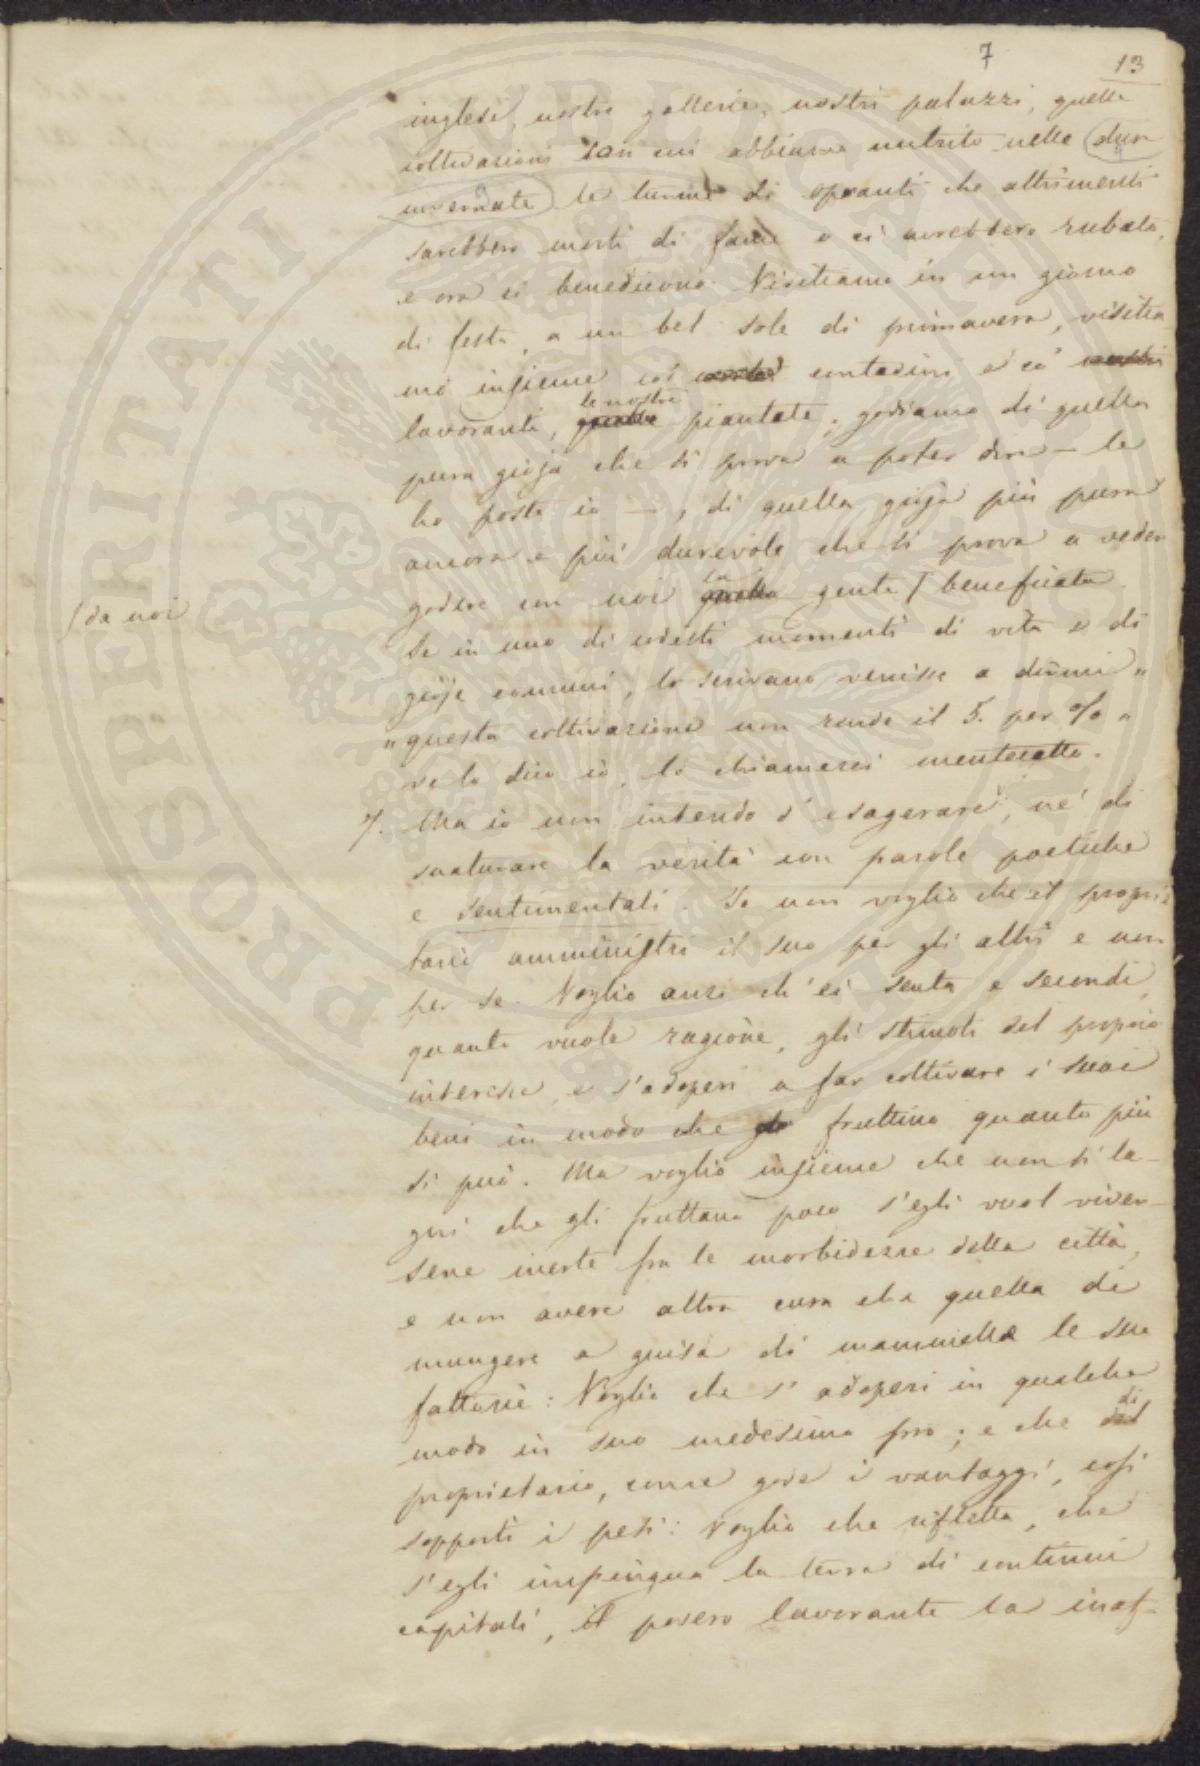 7
13
inglesi, nostre gallerie, nostri palazzi, quelle
coltivazioni con cui abbiamo nutrito nelle dure
invernate le turme di operanti che altrimenti
sarebbero morti di fame o ci avrebbero rubato,
e ora ci benedicono. Visitiamo in un giorno
di festa, a un bel sole di primavera, visitia
mo insieme coi contadini e co'
lavoranti, le nostre piantate; godiamo di quella
pura gioja che si prova a poter dire — le
ho poste io —, di quella gioja più pura
ancora e più durevole che si prova a veder
godere con noi la gente / beneficata.
/ da noi
Se in uno di codesti momenti di vita e di
gioje comuni, lo scrivano venisse a dirmi "
" questa coltivazione non rende il 5. per % "
ve lo dico io, lo chiamerei mentecatto.
7. Ma io non intendo d'esagerare, né di
snaturare la verità con parole poetiche
e sentimentali. Io non voglio che il proprie
tario amministri il suo per gli altri e non
per se. Voglio anzi ch'ei senta e secondi,
quanto vuole ragione, gli stimoli del proprio
interesse, e s'adoperi a far coltivare i suoi
beni in modo che fruttino quanto più
si può. Ma voglio insieme che non si la-
gni che gli fruttano poco s'egli vuol viver-
sene inerte fra le morbidezze della città,
e non avere altra cura che quella di
mungere a guisa di mammelle le sue
fattorie: Voglio che s'adoperi in qualche
modo in suo medesimo pro; e che di
proprietario, come gode i vantaggi, così
sopporti i pesi: voglio che rifletta, che
s'egli impingua la terra di continui
capitali, il povero lavorante la inaf-